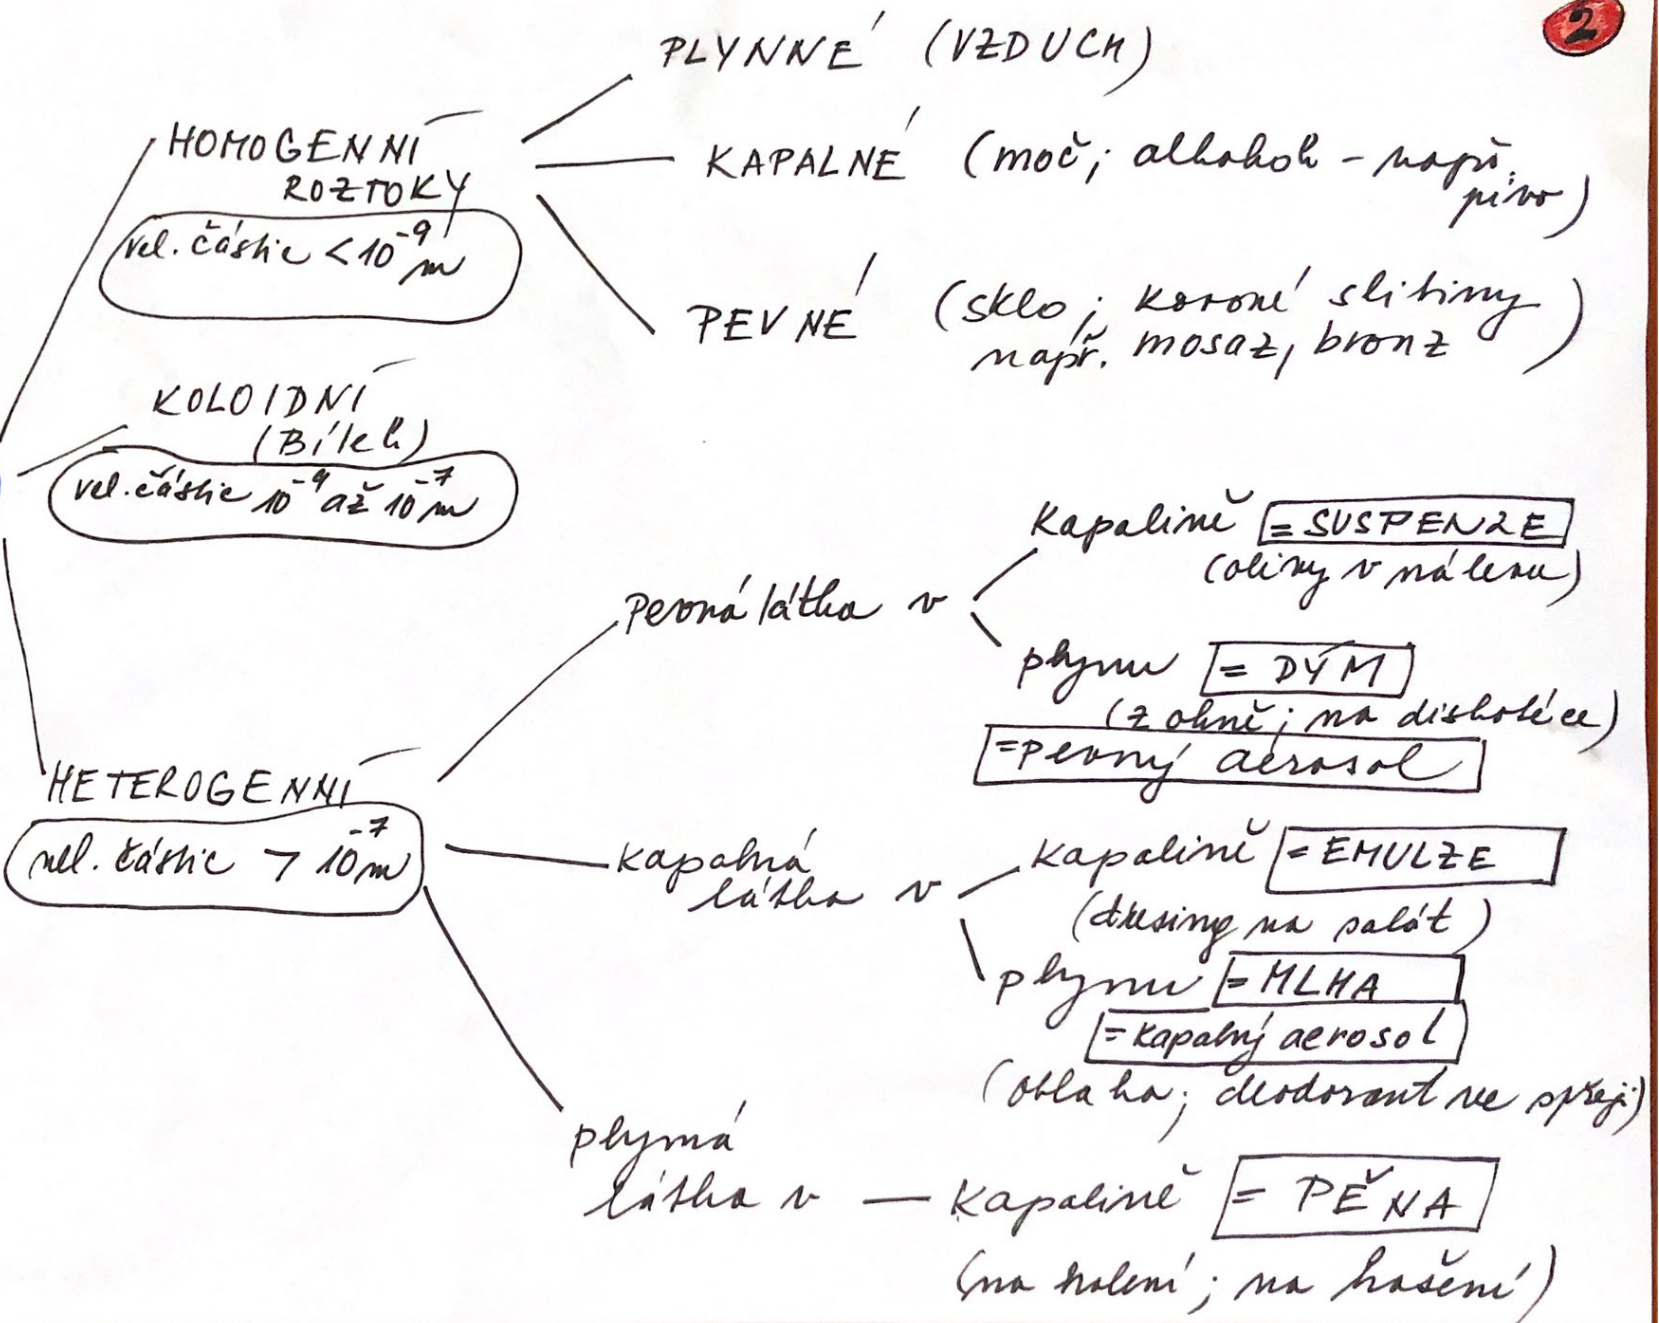 2
PLYNNÉ (VZDUCH)
HOMOGENNÍ
ROZTOKY
vel. částic < 10⁻⁹ m
KAPALNÉ (moč; alkohol - např.
pivo)
PEVNÉ (sklo; kovové slitiny
např. mosaz, bronz)
KOLOIDNÍ
(Bílek)
vel. částic 10⁻⁹ až 10⁻⁷ m
HETEROGENNÍ
vel. částic > 10⁻⁷ m
Pevná látka v
kapalině = SUSPENZE
(olivy v nálevu)
plynu = DÝM
(z ohně; na diskotéce)
= pevný aerosol
kapalná
látka v
kapalině = EMULZE
(dresing na salát)
plynu = MLHA
= kapalný aerosol
(oblaka; deodorant ve spreji)
plynná
látka v — kapalině = PĚNA
(na holení; na hašení)